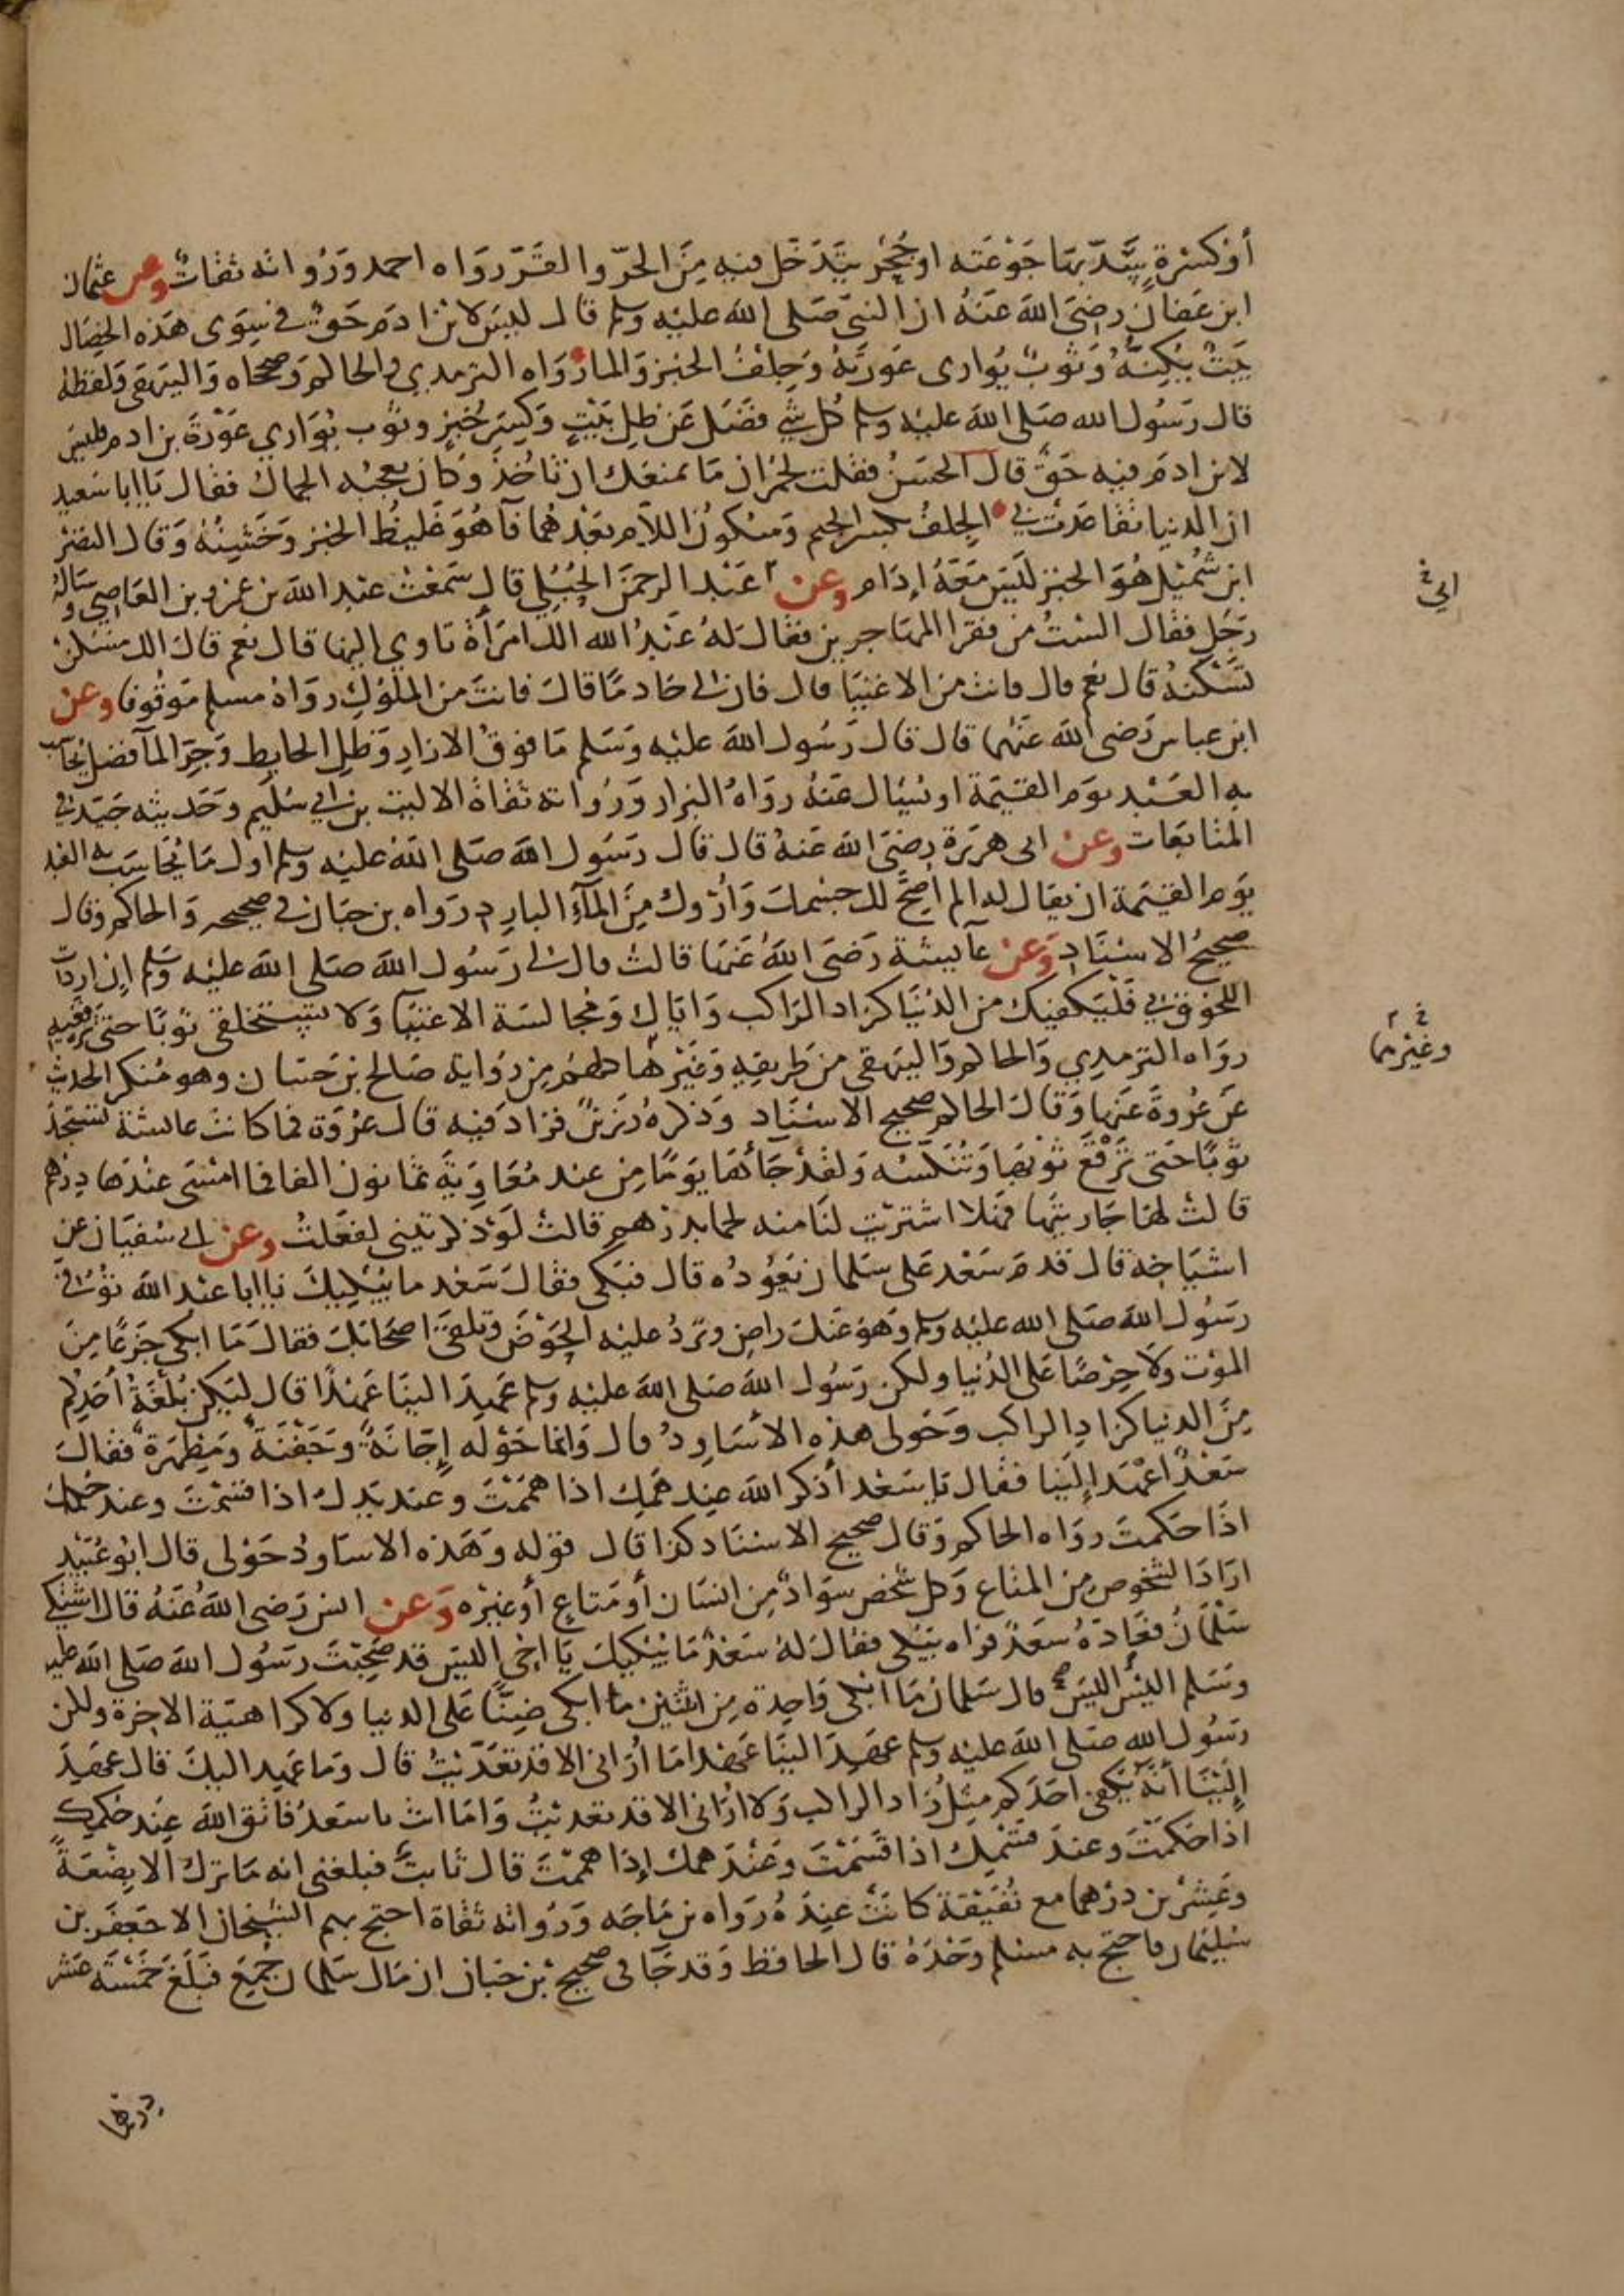 أو كسرة يسد بها جوعته او جحر يتدخل فيه من الحر والقر رواه احمد ورواته ثقات وعن عثمان
ابن عفان رضى الله عنه ان النبى صلى الله عليه وسلم قال ليس لابن ادم حق في سوى هذه الخصال
بيت يكنه وثوب يوارى عورته وجلف الخبز والما رواه الترمدي والحاكم وصححاه والبيهقى ولفظه
قال رسول الله صلى الله عليه وسلم كل شي فضل عن ظل بيت وكسر خبز وثوب يواري عورة بن ادم فليس
لابن ادم فيه حق قال الحسن فقلت لحمران ما يمنعك ان تاخذ وكان يعجبه الجمال فقال يا ابا سعيد
ان الدنيا تقاعدت بي الجلف بكسر الجيم وسكون اللام بعدهما فآ هو غليظ الخبز وخشنه وقال النضر
ابن شميل هو الخبز ليس معه إدام وعن عبد الرحمن الحبلي قال سمعت عبد الله بن عمرو بن العاصي وساله
ابي
رجل فقال الست من فقرا المهاجرين فقال له عبد الله الك امرأة تاوي اليها قال نعم قال الك مسكن
تسكنه قال نعم قال فانت من الاغنيا قال فان لى خادما قال فانت من الملوك رواه مسلم موقوفا وعن
ابن عباس رضى الله عنهما قال قال رسول الله عليه وسلم ما فوق الازار وظل الحايط وجر المآ فضل يحاسب
به العبد يوم القيمة او يسال عنه رواه البزار ورواته ثقاة الا ليث بن ابي سليم وحديثه جيد في
المتابعات وعن ابى هريرة رضى الله عنه قال قال رسول الله صلى الله عليه وسلم اول ما يحاسب به العبد
يوم القيمة ان يقال له الم اصح لك جسمك وأروك من المآء البارد رواه بن حبان في صحيحه والحاكم وقال
صحيح الاسناد وعن عآيشة رضى الله عنها قالت قال لى رسول الله صلى الله عليه وسلم إن اردت
اللحوق بي فليكفيك من الدنيا كزاد الراكب واياك ومجالسة الاغنيا ولا تستخلقى ثوبا حتى ترقعيه
رواه الترمدي والحاكم والبيهقى من طريقه وغيرها كلهم من رواية صالح بن حسان وهو منكر الحديث
وغيرهما
عن عروة عنها وقال الحاكم صحيح الاسناد وذكره رزين فزاد فيه قال عروة فما كانت عائشة تستجد
ثوبا حتى ترقع ثوبها وتنكسه ولقد جائها يوما من عند معاوية ثمانون الفا فما امسى عندها درهم
قالت لها جاريتها فهلا اشتريت لنا منه لحما بدرهم قالت لو ذكرتينى لفعلت وعن ابى سفيان عن
اشياخه قال قدم سعد على سلمان يعوده قال فبكى فقال سعد ما يبكيك يا ابا عبد الله توفى
رسول الله صلى الله عليه وسلم وهو عنك راض وترد عليه الحوض وتلقى اصحابك فقال ما ابكى جزعا من
الموت ولا حرصا على الدنيا ولكن رسول الله صلى الله عليه وسلم عهد الينا عهدا قال ليكن بلغة أحدكم
من الدنيا كزاد الراكب وحولى هذه الأساود قال وانما حوله إجانة وجفنة ومطهرة فقال
سعد اعهد إلينا فقال يا سعد أذكر الله عند همك اذا هممت وعند يدك اذا قسمت وعند حكمك
اذا حكمت رواه الحاكم وقال صحيح الاسناد كذا قال قوله وهذه الاساود حولى قال ابو عبيد
اراد الشخوص من المتاع وكل شخص سواد من انسان أو متاع أو غيره وعن انس رضى الله عنه قال اشتكى
سلمان فعاده سعد فراه يبكى فقال له سعد ما يبكيك يا اخى اليس قد صحبت رسول الله صلى الله عليه
وسلم اليس اليس قال سلمان ما ابكى واحدة من اثنين ما ابكى ضنا على الدنيا ولا كراهية الاخرة ولكن
رسول الله صلى الله عليه وسلم عهد الينا عهدا ما أرانى الا قد تعديت قال وما عهد اليك قال عهد
إلينا أنه يكفى احدكم مثل زاد الراكب ولا ارانى الا قد تعديت واما انت يا سعد فاتق الله عند حكمك
اذا حكمت وعند قسمك اذا قسمت وعند همك إذا هممت قال ثابت فبلغنى انه ما ترك الا بضعة
وعشرين درهما مع نفيقة كانت عنده رواه بن ماجه ورواته ثقاة احتج بهم الشيخان الا جعفر بن
سليمان فاحتج به مسلم وحده قال الحافظ وقد جا فى صحيح بن حبان ان مال سلمان جميع فبلغ خمسة عشر
درهما